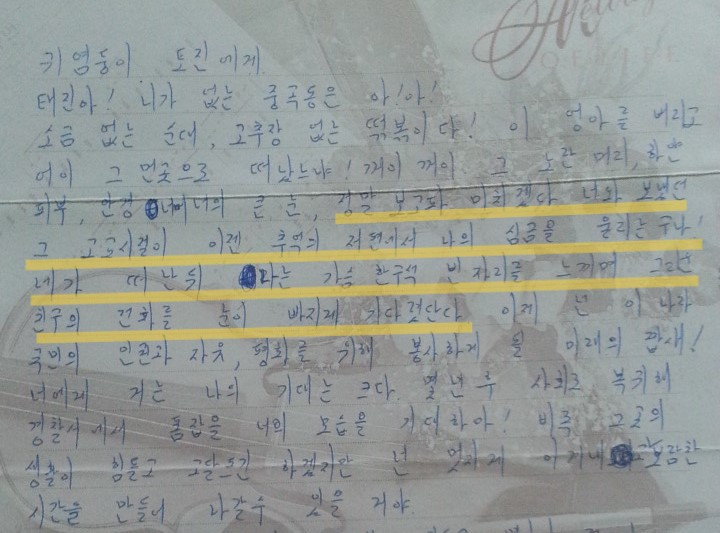 귀염둥이 토린에게.
태진아! 니가 없는 중국동은 아!아!
소금 없는 순대, 고추장 없는 떡볶이다! 이 엉아를 버리고
어이 그 먼곳으로 떠났느냐! 꺼이 꺼이. 그 노란 머리, 하얀
피부, 안경 너머 너의 큰 눈, 정말 보고파 미치겠다 너와 보냈던
그 고교시절이 이젠 추억의 저편에서 나의 심금을 울리는구나!
네가 떠난 뒤 나는 가슴 한구석 빈 자리를 느끼며 그런
친구의 전화를 눈이 빠지게 기다렸단다 이제 넌 이 나라
국민의 인권과 자유, 평화를 위해 봉사하게 될 미래의 짭새!
너에게 거는 나의 기대는 크다. 몇 년 후 사회로 복귀해
경찰서에서 폼잡을 너의 모습을 기대하마! 비록 그곳의
생활이 힘들고 고달프긴 하겠지만 넌 멋지게 이겨내고 보람찬
시간을 만들어 나갈수 있을 거야.